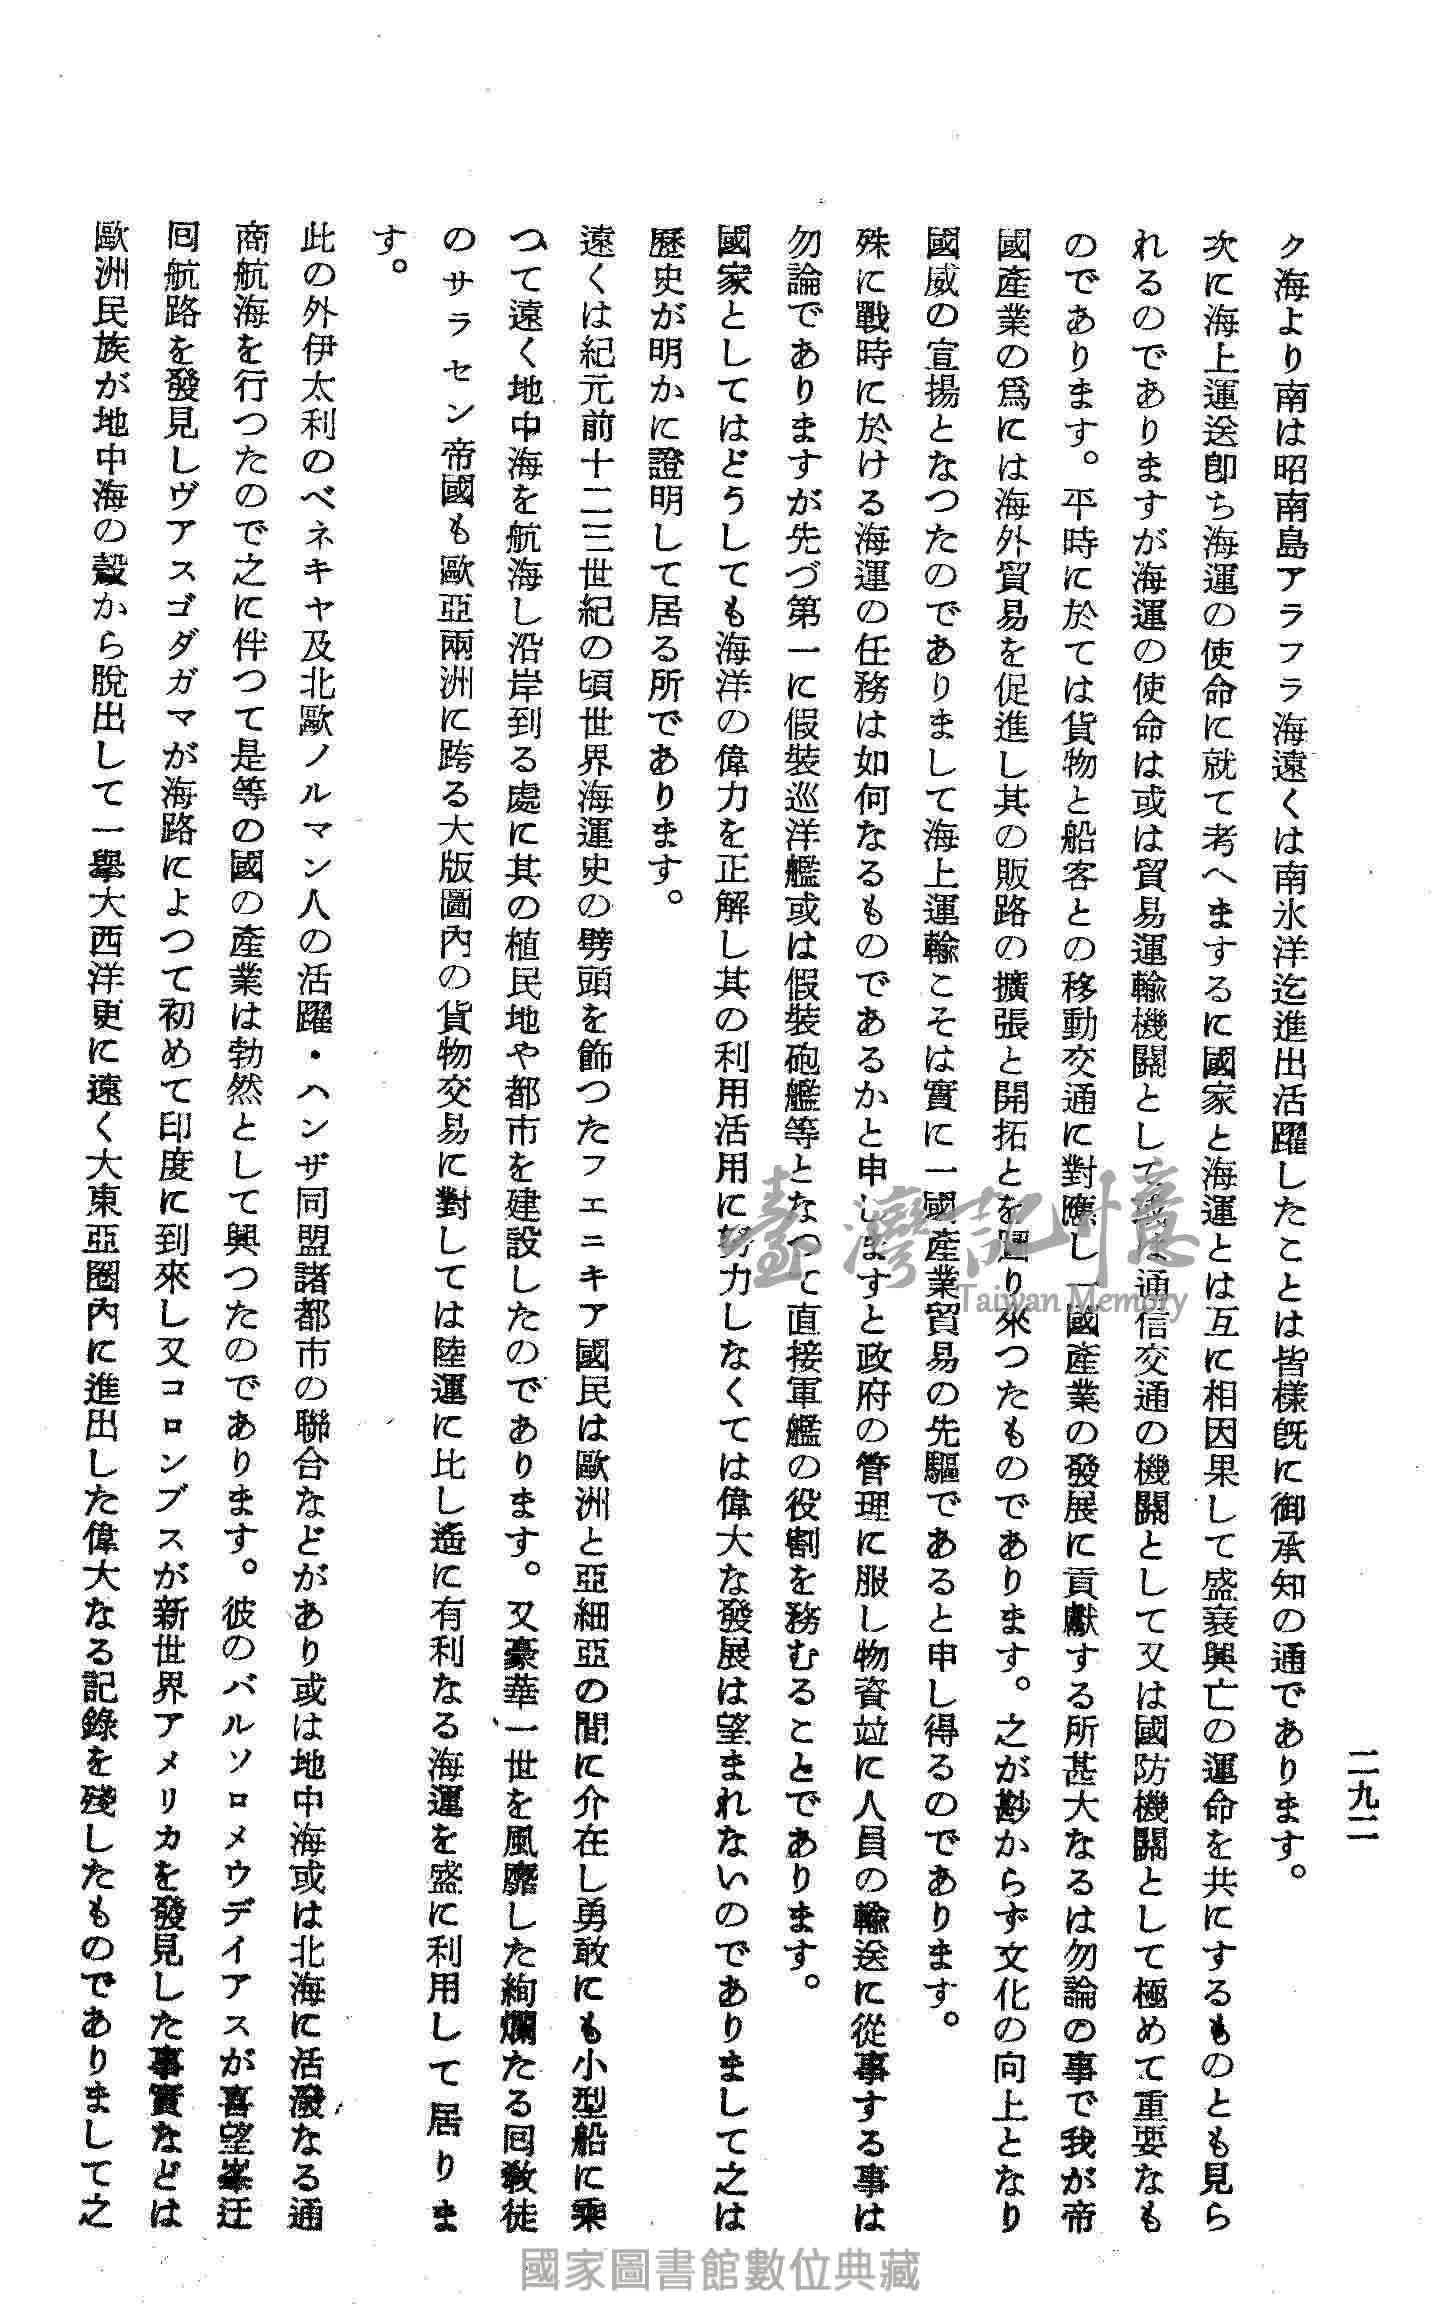 二九二
ク海より南は昭南島アラフラ海遠くは南氷洋迄進出活躍したことは皆様旣に御承知の通であります。
次に海上運送卽ち海運の使命に就て考へまするに國家と海運とは互に相因果して盛衰興亡の運命を共にするものとも見ら
れるのでありますが海運の使命は或は貿易運輸機關として或は通信交通の機關として又は國防機關として極めて重要なも
のであります。平時に於ては貨物と船客との移動交通に對應し一國產業の發展に貢獻する所甚大なるは勿論の事で我が帝
國產業の爲には海外貿易を促進し其の販路の擴張と開拓とを圖り來つたものであります。之が尠からず文化の向上となり
國威の宣揚となつたのでありまして海上運輸こそは實に一國產業貿易の先驅であると申し得るのであります。
殊に戰時に於ける海運の任務は如何なるものであるかと申しますと政府の管理に服し物資竝に人員の輸送に從事する事は
勿論でありますが先づ第一に假裝巡洋艦或は假裝砲艦等となつて直接軍艦の役割を務むることであります。
國家としてはどうしても海洋の偉力を正解し其の利用活用に努力しなくては偉大な發展は望まれないのでありまして之は
歷史が明かに證明して居る所であります。
遠くは紀元前十二三世紀の頃世界海運史の劈頭を飾つたフエニキア國民は歐洲と亞細亞の間に介在し勇敢にも小型船に乘
つて遠く地中海を航海し沿岸到る處に其の植民地や都市を建設したのであります。又豪華一世を風靡した絢爛たる回敎徒
のサラセン帝國も歐亞兩洲に跨る大版圖內の貨物交易に對しては陸運に比し遙に有利なる海運を盛に利用して居りま
す。
此の外伊太利のベネキヤ及北歐ノルマン人の活躍・ハンザ同盟諸都市の聯合などがあり或は地中海或は北海に活潑なる通
商航海を行つたので之に伴つて是等の國の產業は勃然として興つたのであります。彼のバルソロメウデイアスが喜望峯迂
回航路を發見しヴアスゴダガマが海路によつて初めて印度に到來し又コロンブスが新世界アメリカを發見した事實などは
歐洲民族が地中海の殼から脫出して一擧大西洋更に遠く大東亞圈內に進出した偉大なる記錄を殘したものでありまして之
臺灣記憶
Taiwan Memory
國家圖書館數位典藏